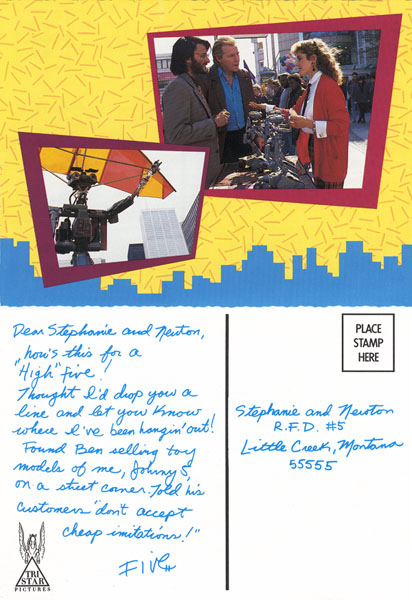 Dear Stephanie and Newton,
"how's this for a
"High" five!
Thought I'd drop you a
line and let you know
where I've been hangin' out!
Found Ben selling toy
models of me, Johnny 5,
on a street corner. Told his
customers "don't accept
cheap imitations!"
Five
TRI
STAR
PICTURES
PLACE
STAMP
HERE
Stephanie and Newton
R.F.D. #5
Little Creek, Montana
55555